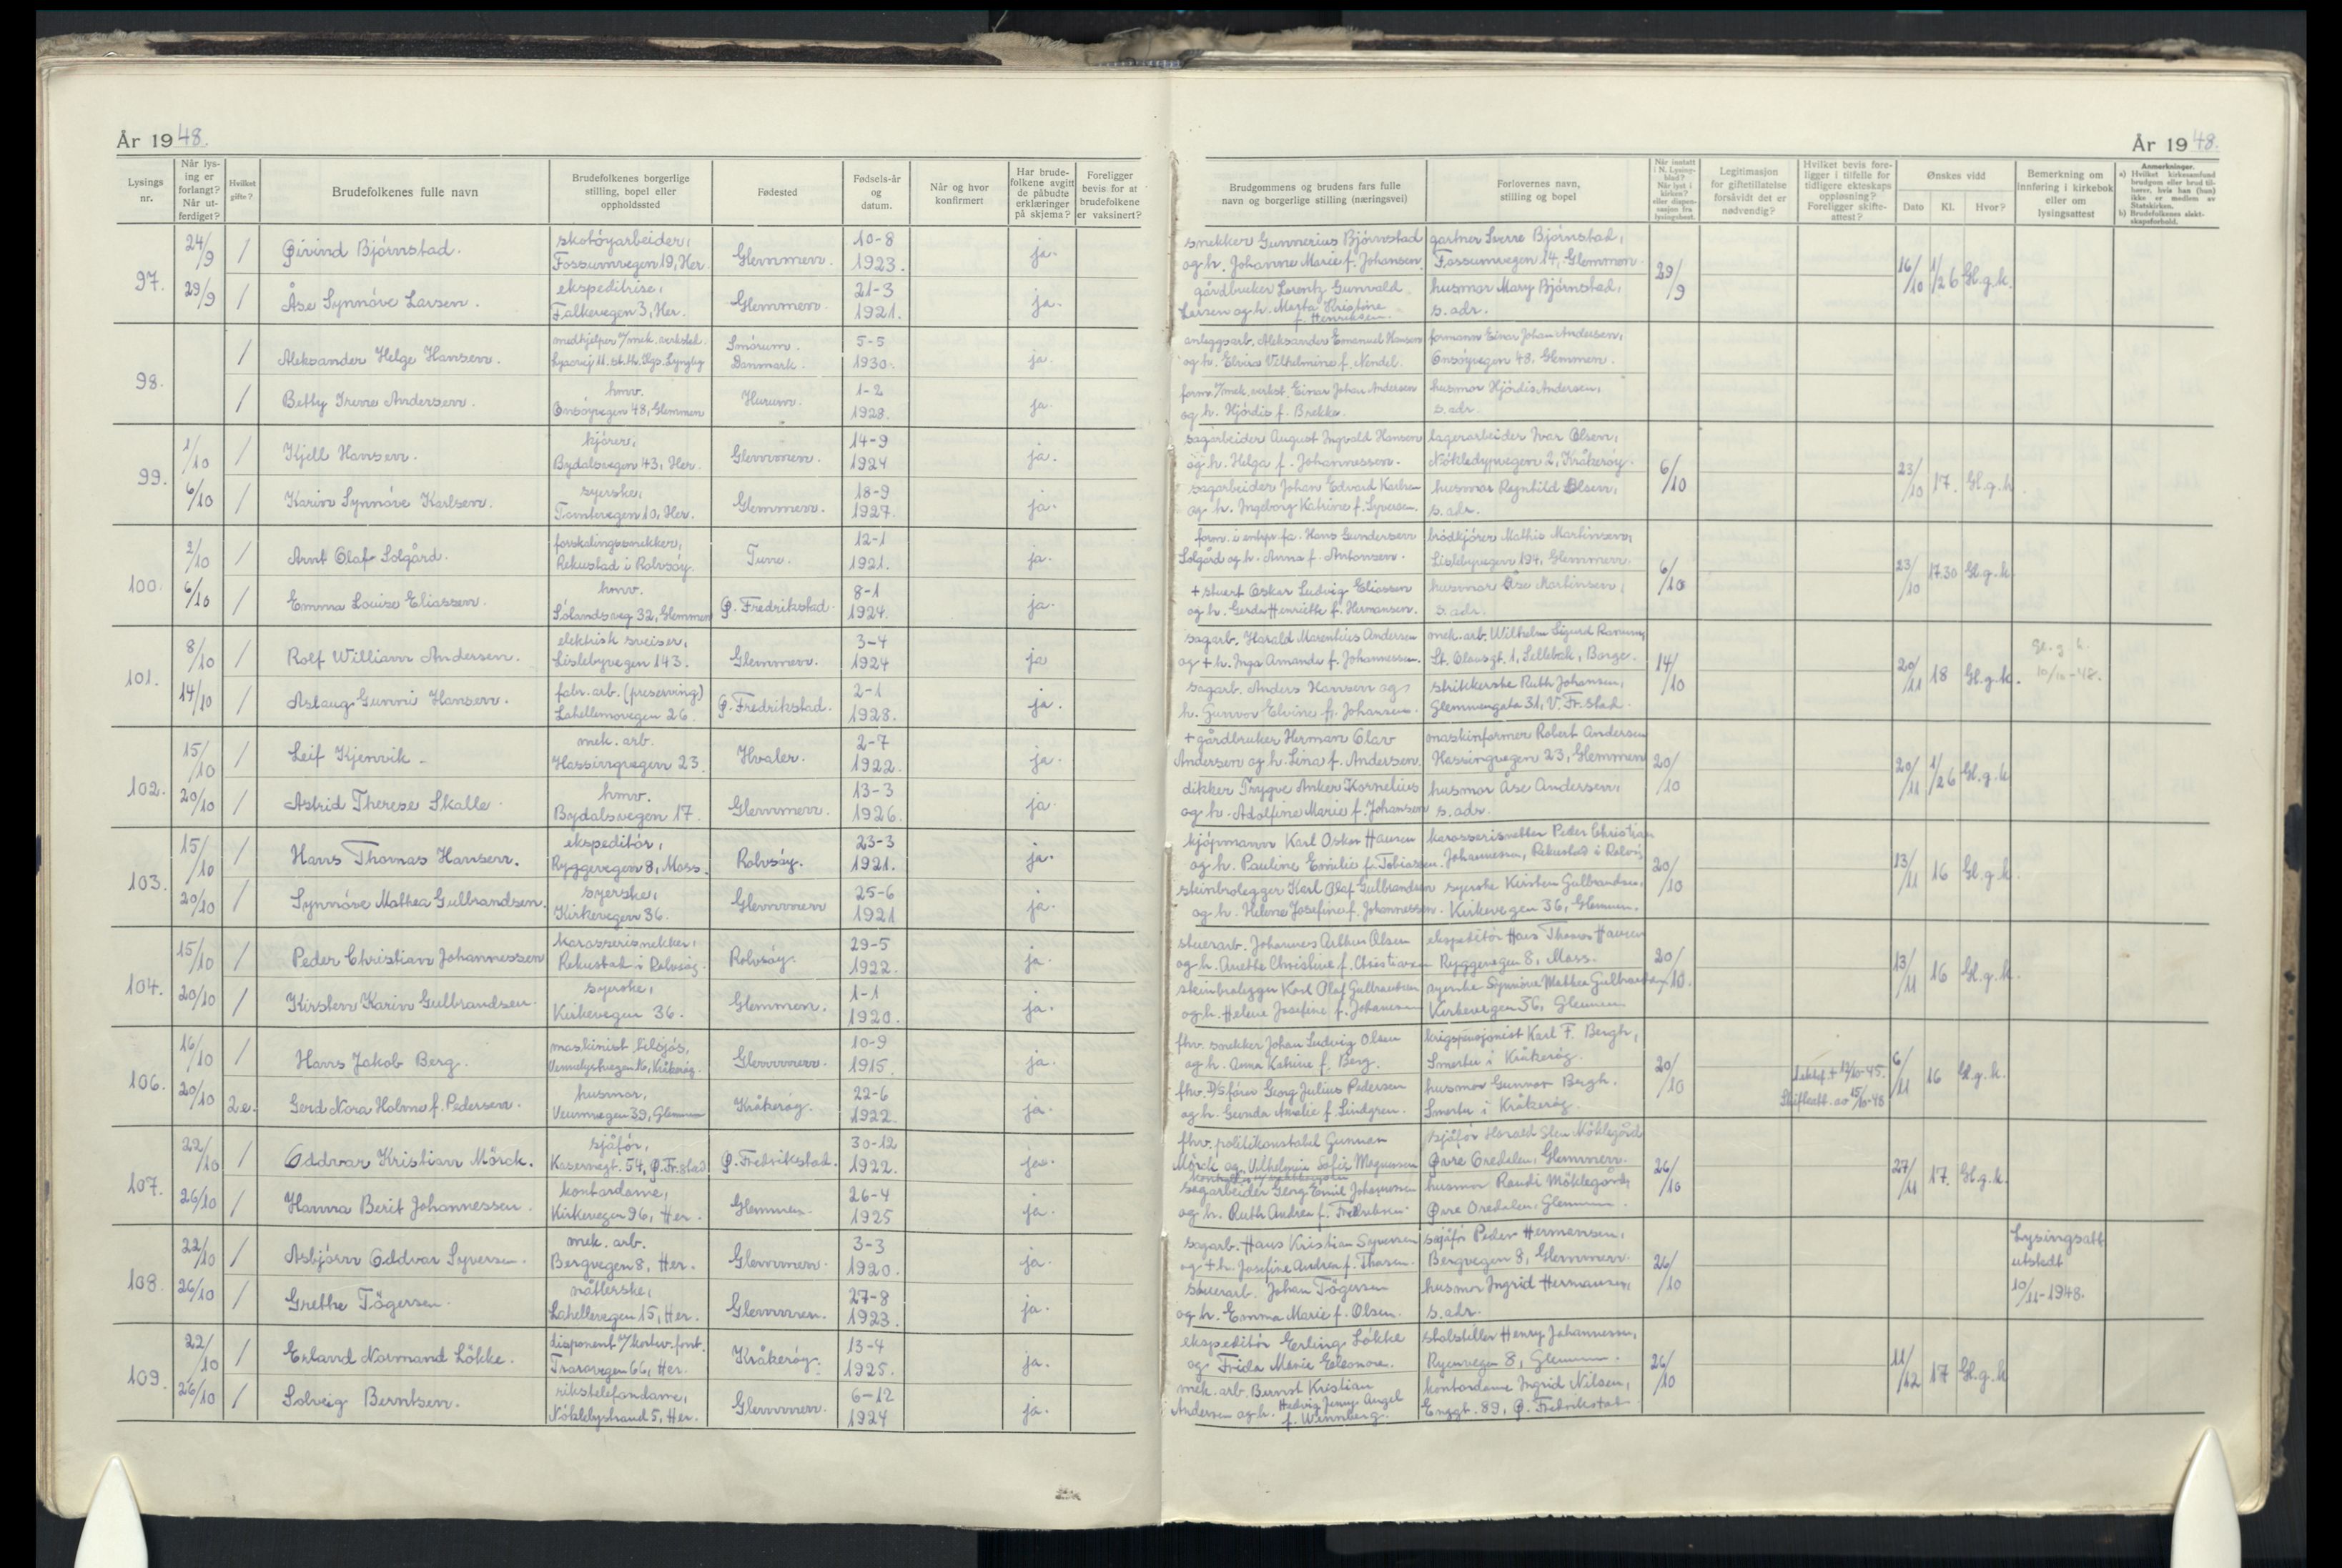 År 1948.
År 1948.
Lysings nr.
Når lysing er forlangt? Når utferdiget?
Hvilket gifte?
Brudefolkenes fulle navn
Brudefolkenes borgerlige stilling, bopel eller oppholdssted
Fødested
Fødsels-år og datum.
Når og hvor konfirmert
Har brudefolkene avgitt de påbudte erklæringer på skjema?
Foreligger bevis for at brudefolkene er vaksinert?
Brudgommens og brudens fars fulle navn og borgerlige stilling (næringsvei)
Forlovernes navn, stilling og bopel
Legitimasjon for giftetillatelse forsåvidt det er nødvendig?
Hvilket bevis foreligger i tilfelle for tidligere ekteskaps oppløsning? Foreligger skifteattest?
Ønskes vidd
Dato
Kl.
Hvor?
Bemerkning om innføring i kirkebok eller om lysingsattest
Anmerkninger.
97.
24/9 / Øivind Bjørnstad. skotøyarbeider, Fossumvegen 19, Her. Glemmen. 10-8 1923. ja.
snekker Gunnerius Bjørnstad og h. Johanne Marie f. Johansen. gartner Sverre Bjørnstad, Fossumvegen 14, Glemmen.
29/9 / Åse Synnøve Larsen. ekspeditrise, Falkevegen 3, Her. Glemmen. 21-3 1921. ja.
gårdbruker Lorentz Gunvald Larsen og h. Marta Kristine f. Henriksen. husmor Mary Bjørnstad, s. adr.
29/9 16/10 1/2 6 Gl.g.k.
98.
/ Aleksander Helge Hansen. medhjelper v/mek. verksted. Smørum. Danmark. 5-5 1930. ja.
anleggsarb. Aleksander Emanuel Hansen og h. Elvira Vilhelmine f. Nendel. formann Einar Johan Andersen, Onsøyvegen 48. Glemmen.
/ Betty Irene Andersen. hmv. Onsøyvegen 48, Glemmen Hurum. 1-2 1928. ja.
form. v/mek. verkst. Einar Johan Andersen og h. Hjørdis f. Brekke. husmor Hjørdis Andersen, s. adr.
99.
1/10 / Kjell Hansen. kjører, Bydalsvegen 43, Her. Glemmen. 14-9 1924 ja.
sagarbeider August Ingvald Hansen og h. Helga f. Johannessen. lagerarbeider Ivar Olsen, Nøkledypvegen 2, Kråkerøy.
6/10 / Karin Synnøve Karlsen. syerske, Tomtevegen 10, Her. Glemmen. 18-9 1927. ja.
sagarbeider Johan Edvard Karlsen og h. Ingeborg Katrine f. Syversen. husmor Ragnhild Olsen, s. adr.
6/10 23/10 17. Gl.g.k
100.
2/10 / Arnt Olaf Solgård. forskalingssnekker, Rekustad i Rolvsøy. Tune. 12-1 1921. ja.
form. i entrpr. fa. Hans Gundersen Solgård og h. Anna f. Antonsen. brødkjører Mathis Martinsen, Lislebyvegen 194, Glemmen.
6/10 / Emma Louise Eliassen. hmv. Sølandsveg 32, Glemmen Ø. Fredrikstad. 8-1 1924. ja.
+ stuert Oskar Ludvig Eliassen og h. Gerda Henriette f. Hermansen. husmor Åse Martinsen, s. adr.
6/10 23/10 17.30 Gl.g.k
101.
8/10 / Rolf William Andersen. elektrisk sveiser, Lislebyvegen 143. Glemmen. 3-4 1924 ja
sagarb. Harald Marentius Andersen og + h. Inga Amanda f. Johannessen. mek. arb. Wilhelm Sigurd St. Olavsgt. 1, Sellebak, Borge.
14/10 / Aslaug Gunni Hansen. fabr. arb. (preserving) Lahellemovegen 26. Ø. Fredrikstad. 2-1 1928. ja.
sagarb. Anders Hansen og h. Gunvor Elvine f. Johansen. strikkerske Ruth Johansen, Glemmengata 31, V. Fr.stad.
14/10 20/11 18 Gl.g.k. Gl. g k. 10/10-48.
102.
15/10 / Leif Kjenvik. mek. arb. Hassingvegen 23. Hvaler. 2-7 1922. ja.
+ gårdbruker Herman Olav Andersen og h. Lina f. Andersen. maskinformer Robert Andersen Hassingvegen 23, Glemmen
20/10 / Astrid Therese Skalle. hmv. Bydalsvegen 17. Glemmen. 13-3 1926. ja.
dikker Trygve Anker Kornelius og h. Adolfine Marie f. Johansen husmor Åse Andersen, s. adr.
20/10 20/11 1/2 6 Gl.g.k
103.
15/10 / Hans Thomas Hansen. ekspeditør, Ryggevegen 8, Moss. Rolvsøy. 23-3 1921. ja.
kjøpmann Karl Oskar Hansen og h. Pauline Emilie f. Tobiassen. karosserisnekker Peder Christian Johannessen, Rekustad i Rolvsøy
20/10 / Synnøve Mathea Gulbrandsen. syerske, Kirkevegen 36. Glemmen 25-6 1921 ja.
steinbrolegger Karl Olaf Gulbrandsen og h. Helene Josefine f. Johannessen. syerske Kirsten Gulbrandsen, Kirkevegen 36, Glemmen.
20/10 13/11 16 Gl.g.k.
104.
15/10 / Peder Christian Johannessen karosserisnekker, Rekustad i Rolvsøy. Rolvsøy. 29-5 1922. ja.
stuerarb. Johannes Arthur Olsen og h. Anethe Christine f. Christiansen ekspeditør Hans Thomas Hansen Ryggevegen 8, Moss.
20/10 / Kirsten Karin Gulbrandsen. syerske, Kirkevegen 36. Glemmen. 1-1 1920. ja.
steinbrolegger Karl Olaf Gulbrandsen og h. Helene Josefine f. Johansen syerske Synnøve Mathea Gulbrandsen, Kirkevegen 36, Glemmen
20/10. 13/11 16 Gl.g.k.
106.
16/10 / Hans Jakob Berg. maskinist tilsjøs, Glemmen. 10-9 1915. ja.
fhv. snekker Johan Ludvig Olsen og h. Anna Katrine f. Berg. krigspensjonist Karl F. Bergh, Smertu i Kråkerøy.
20/10 2.e. Gerd Nora Holme f. Pedersen. husmor, Veumvegen 39, Glemmen Kråkerøy. 22-6 1922. ja.
fhv. D/S fører Georg Julius Pedersen og h. Gunda Amalie f. Lindgren. husmor Gunnor Bergh. Smertu i Kråkerøy.
20/10 Skifteatt. av 15/10-48 6/11 16 Gl.g.k.
107.
22/10 / Oddvar Kristian Mørck. sjåfør, Kasernegt. 54, Ø. Fr.stad Ø. Fredrikstad. 30-12 1922. ja.
fhv. politikonstabel Gunnar Mørck og Vilhelmine Sofie Magnussen sjåfør Harald Sten Møklegård Øvre Oredalen, Glemmen.
26/10 / Hanna Berit Johannessen. kontordame, Kirkevegen 96, Her. Glemmen. 26-4 1925 ja.
sagarbeider Georg Emil Johannessen og h. Ruth Andrea f. Fredriksen. husmor Randi Møklegård, Øvre Oredalen, Glemmen.
26/10 27/11 17. Gl.g.k.
108.
22/10 / Asbjørn Oddvar Syversen. mek. arb. Bergvegen 8, Her. Glemmen. 3-3 1920. ja.
sagarb. Hans Kristian Syversen og + h. Josefine Andrea f. Thorsen. sjåfør Peder Hermansen, Bergvegen 8, Glemmen.
26/10 / Grethe Tögersen. nåtlerske, Lahellevegen 15, Her. Glemmen. 27-8 1923. ja.
stuerarb. Johan Tögersen og h. Emma Marie f. Olsen. husmor Ingrid Hermansen, s. adr.
26/10 Lysingsatt. utstedt 10/11-1948.
109.
22/10 / Erland Normand Løkke. disponent v/kontor.forr. Traravegen 66, Her. Kråkerøy. 13-4 1925. ja.
ekspeditør Erling Løkke og Frida Marie Eleonore. Henry Johannessen, Ryenvegen 8, Glemmen.
26/10 / Solveig Berntsen. rikstelefondame, Nøklebystrand 5, Her. Glemmen. 6-12 1924 ja.
mek. arb. Bernt Kristian Andersen og h. Hedvig Jenny Angel f. Wennberg. kontordame Ingrid Nilsen, Enggt. 89, Ø. Fredrikstad.
26/10 11/12 17 Gl.g.k